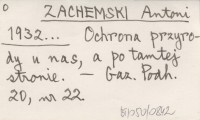 0
ZACHEMSKI Antoni
1932... Ochrona przyro-
dy u nas, a po tamtej
stronie. — Gaz. Podh.
20, nr 22.